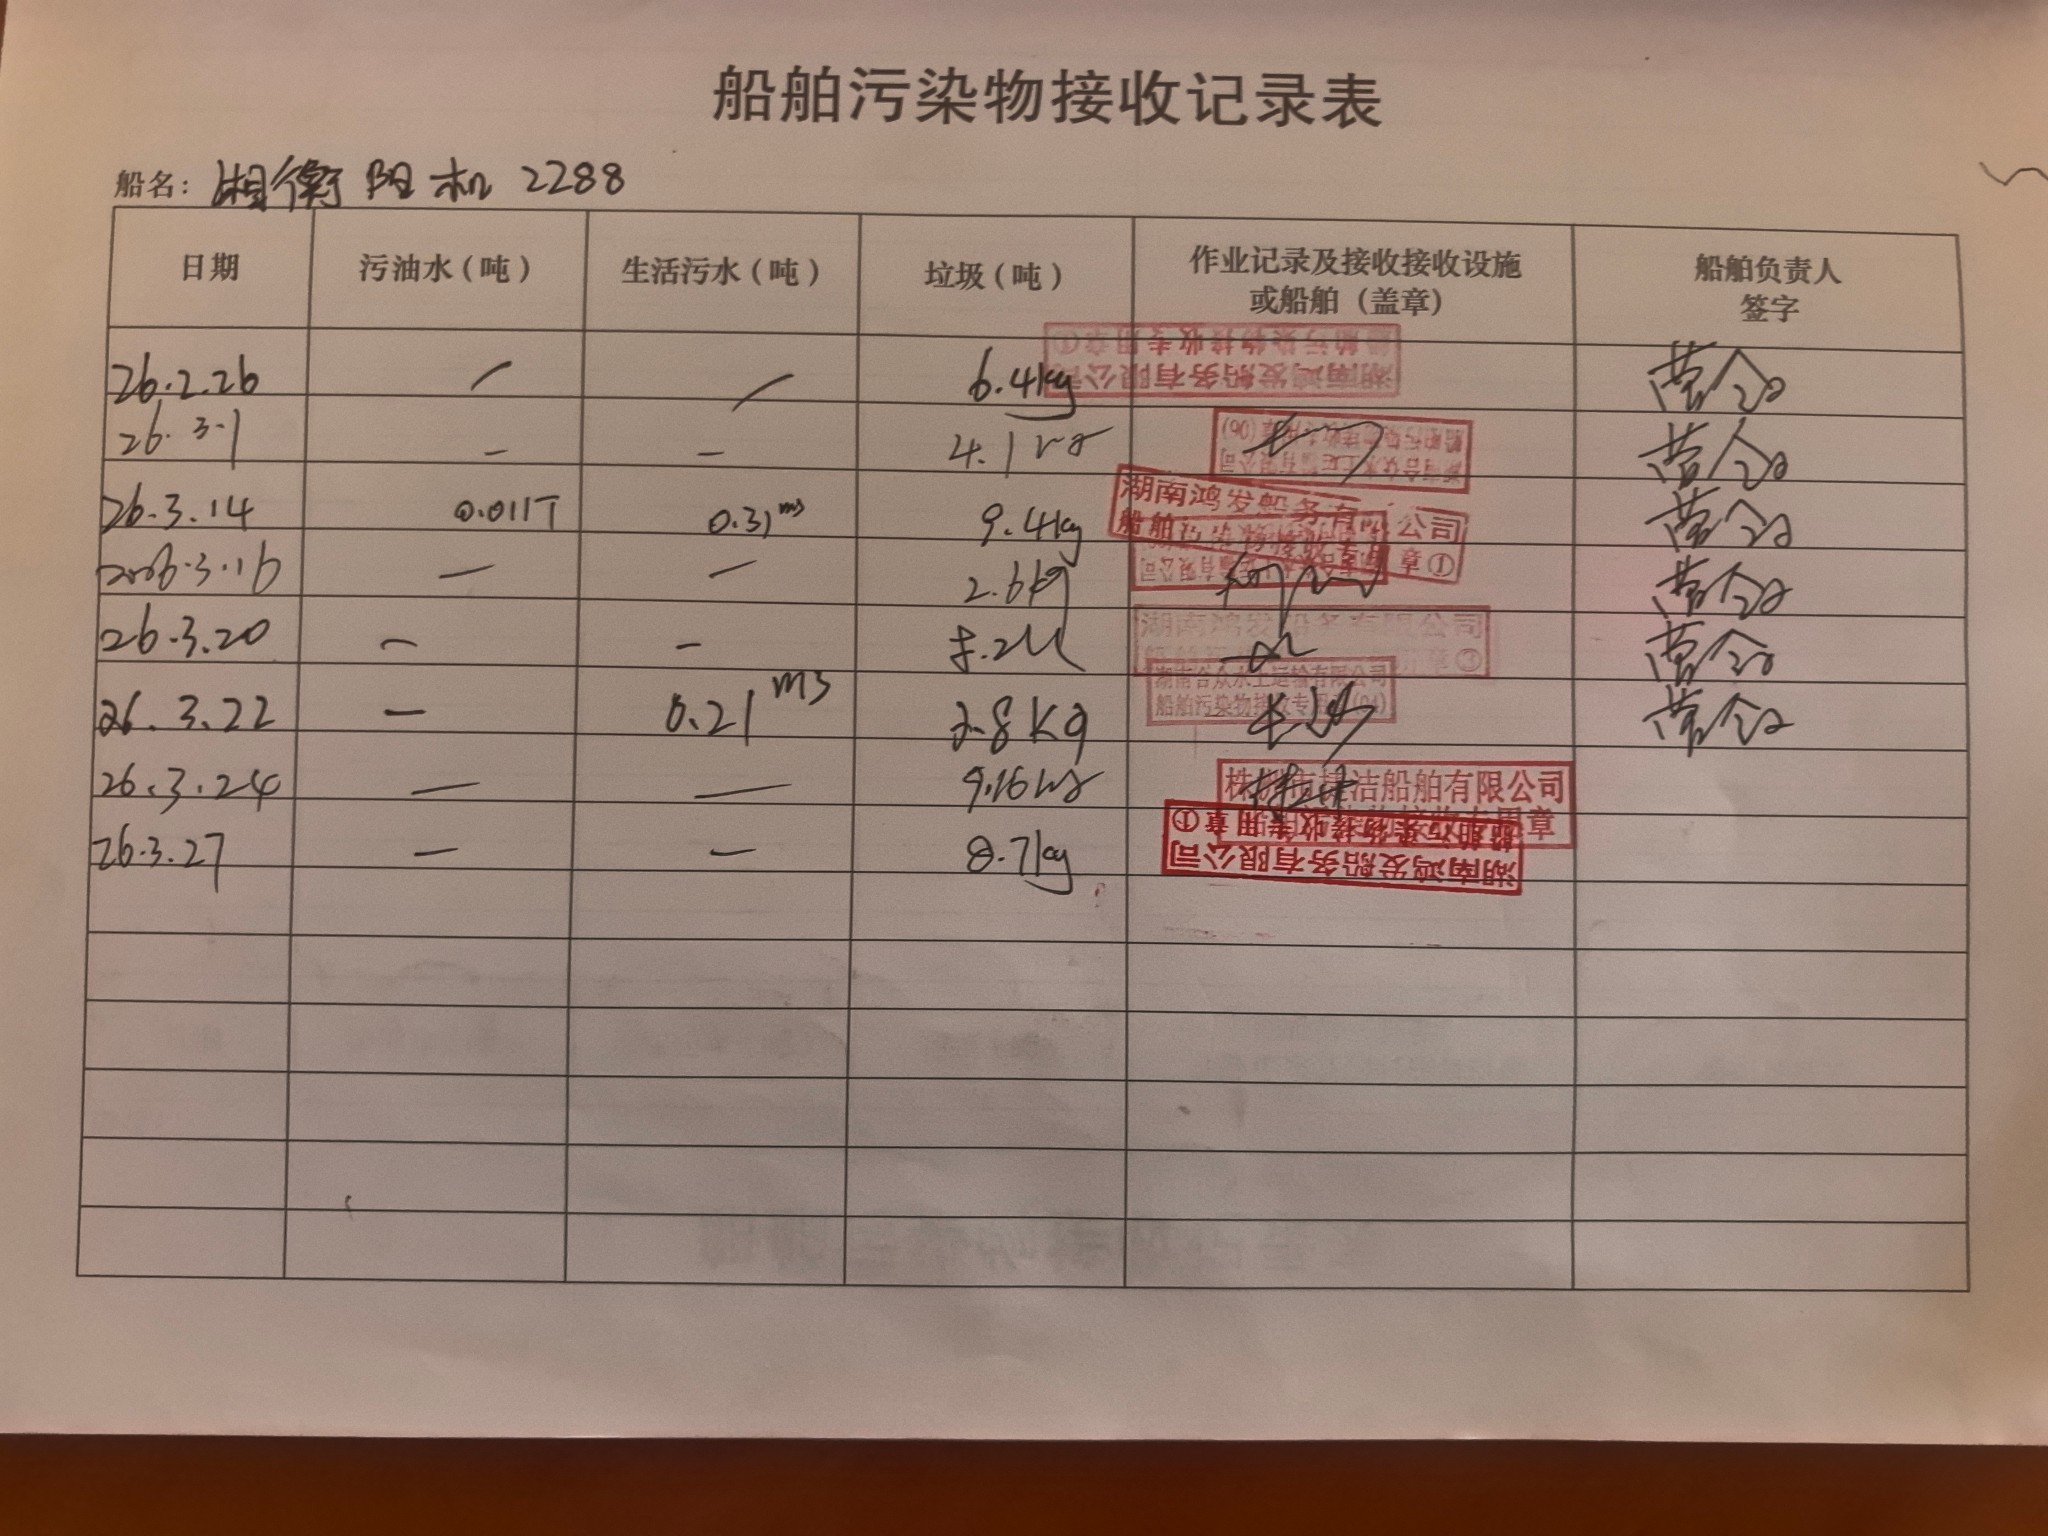 船舶污染物接收记录表
船名：湘衡阳机 2288
日期 污油水（吨） 生活污水（吨） 垃圾（吨） 作业记录及接收接收设施或船舶（盖章） 船舶负责人签字
26.2.26 / / 6.4kg 湖南鸿发船务有限公司 船舶污染物接收专用章①
26.3.1 – – 4.1 船舶污染物接收专用章(06)
26.3.14 0.011T 0.31m3 9.4kg 湖南鸿发船务有限公司 船舶污染物接收专用章①
2026.3.16 — — 2.6kg
26.3.20 – – 湖南鸿发船务有限公司 章③
26.3.22 – 0.21m3 2.8Kg 湖南合众水上运输有限公司 船舶污染物接收专用章(04) 长沙
26.3.24 — — 9.16 株洲市捷洁船舶有限公司 用章
26.3.27 — — 8.7kg 湖南鸿发船务有限公司 船舶污染物接收专用章①